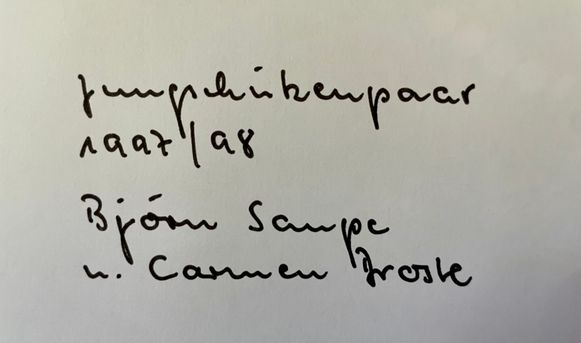 Jungschützenpaar
1997/98
Björn Sampe
u. Carmen Droste